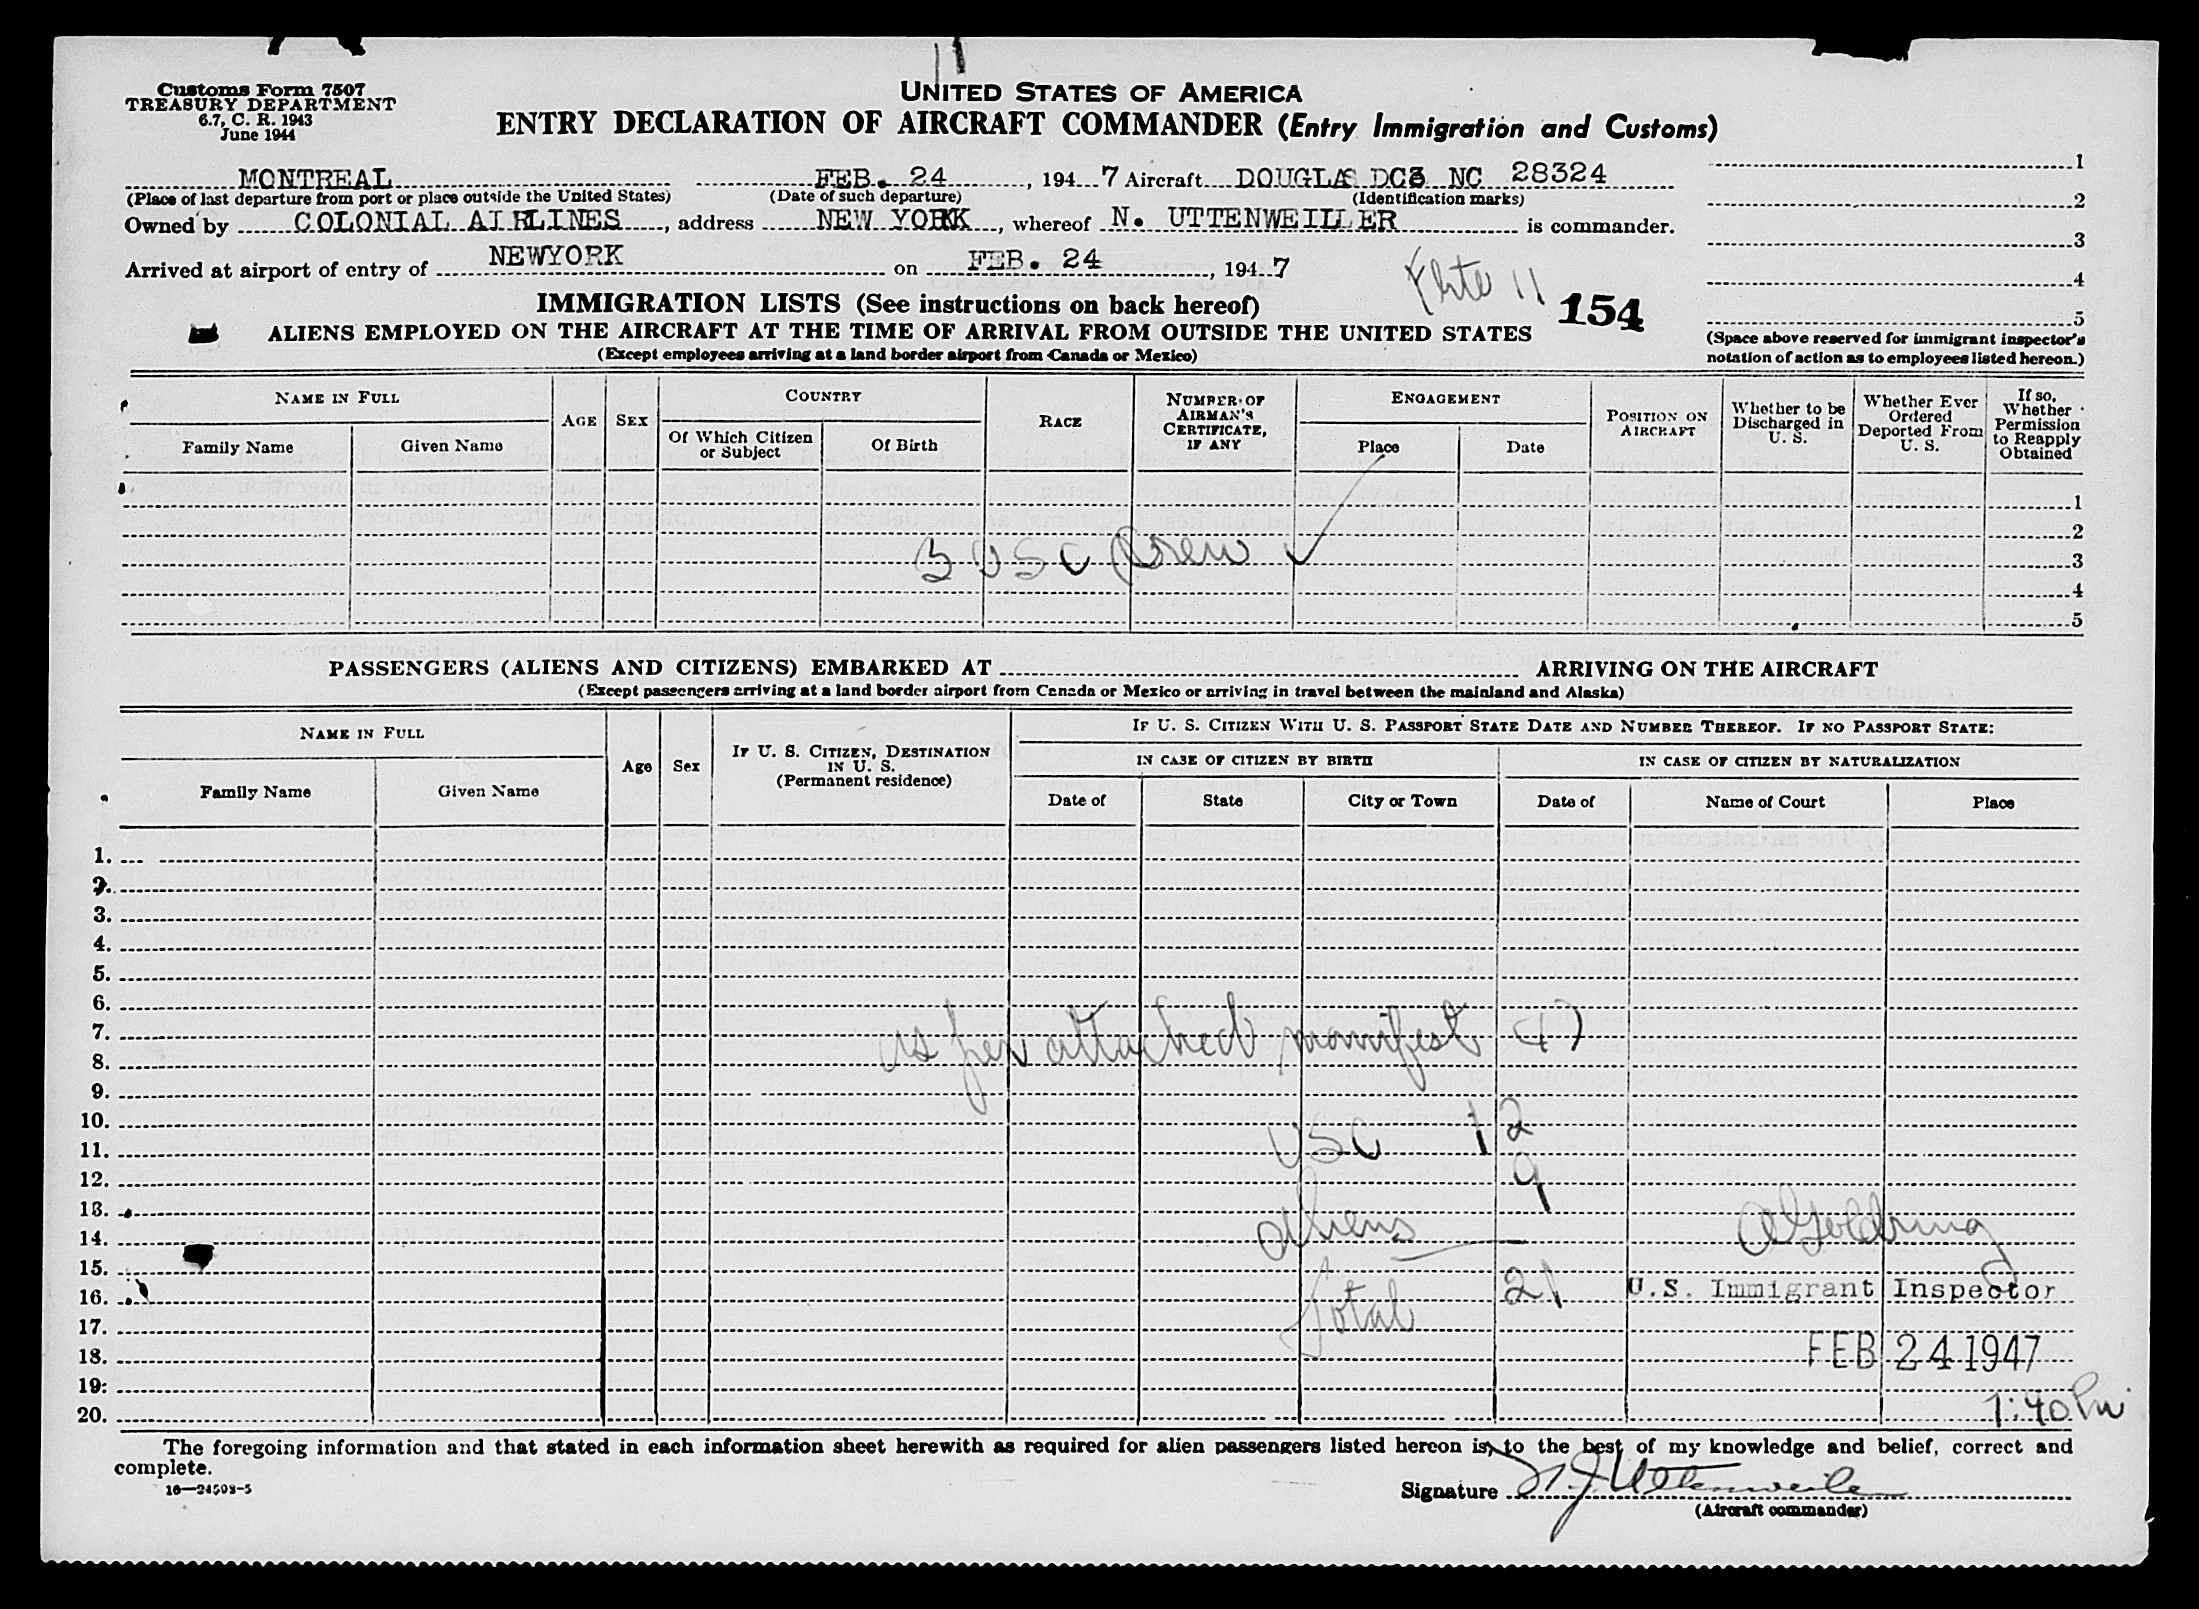 11
Customs Form 7507
TREASURY DEPARTMENT
6.7, C. R. 1943
June 1944
UNITED STATES OF AMERICA
ENTRY DECLARATION OF AIRCRAFT COMMANDER (Entry Immigration and Customs)
MONTREAL FEB. 24, 1947 Aircraft DOUGLAS DC3 NC 28324
(Place of last departure from port or place outside the United States) (Date of such departure) (Identification marks)
Owned by COLONIAL AIRLINES, address NEW YORK, whereof N. UTTENWEILLER is commander.
Arrived at airport of entry of NEWYORK on FEB. 24, 1947
1
2
3
4
5
(Space above reserved for immigrant inspector's
notation of action as to employees listed hereon.)
Flite 11
154
IMMIGRATION LISTS (See instructions on back hereof)
ALIENS EMPLOYED ON THE AIRCRAFT AT THE TIME OF ARRIVAL FROM OUTSIDE THE UNITED STATES
(Except employees arriving at a land border airport from Canada or Mexico)
NAME IN FULL
Family Name
Given Name
AGE
SEX
COUNTRY
Of Which Citizen
or Subject
Of Birth
RACE
NUMBER OF
AIRMAN'S
CERTIFICATE,
IF ANY
ENGAGEMENT
Place
Date
POSITION ON
AIRCRAFT
Whether to be
Discharged in
U. S.
Whether Ever
Ordered
Deported From
U. S.
If so,
Whether
Permission
to Reapply
Obtained
1
2
3 USC Crew ✓
3
4
5
PASSENGERS (ALIENS AND CITIZENS) EMBARKED AT ARRIVING ON THE AIRCRAFT
(Except passengers arriving at a land border airport from Canada or Mexico or arriving in travel between the mainland and Alaska)
NAME IN FULL
Family Name
Given Name
Age
Sex
IF U. S. CITIZEN, DESTINATION
IN U. S.
(Permanent residence)
IF U. S. CITIZEN WITH U. S. PASSPORT STATE DATE AND NUMBER THEREOF. IF NO PASSPORT STATE:
IN CASE OF CITIZEN BY BIRTH
Date of
State
City or Town
IN CASE OF CITIZEN BY NATURALIZATION
Date of
Name of Court
Place
1.
2.
3.
4.
5.
6.
7. as per attached manifest
8.
9.
10. USC 12
11.
12.
13. Aliens 9 A Goldring
14.
15.
16. Total 21 U.S. Immigrant Inspector
17.
18. FEB 24 1947
19.
20. 1:40 Pm
The foregoing information and that stated in each information sheet herewith as required for alien passengers listed hereon is, to the best of my knowledge and belief, correct and
complete.
16—24508-5
Signature N. J. Uttenweiler
(Aircraft commander)